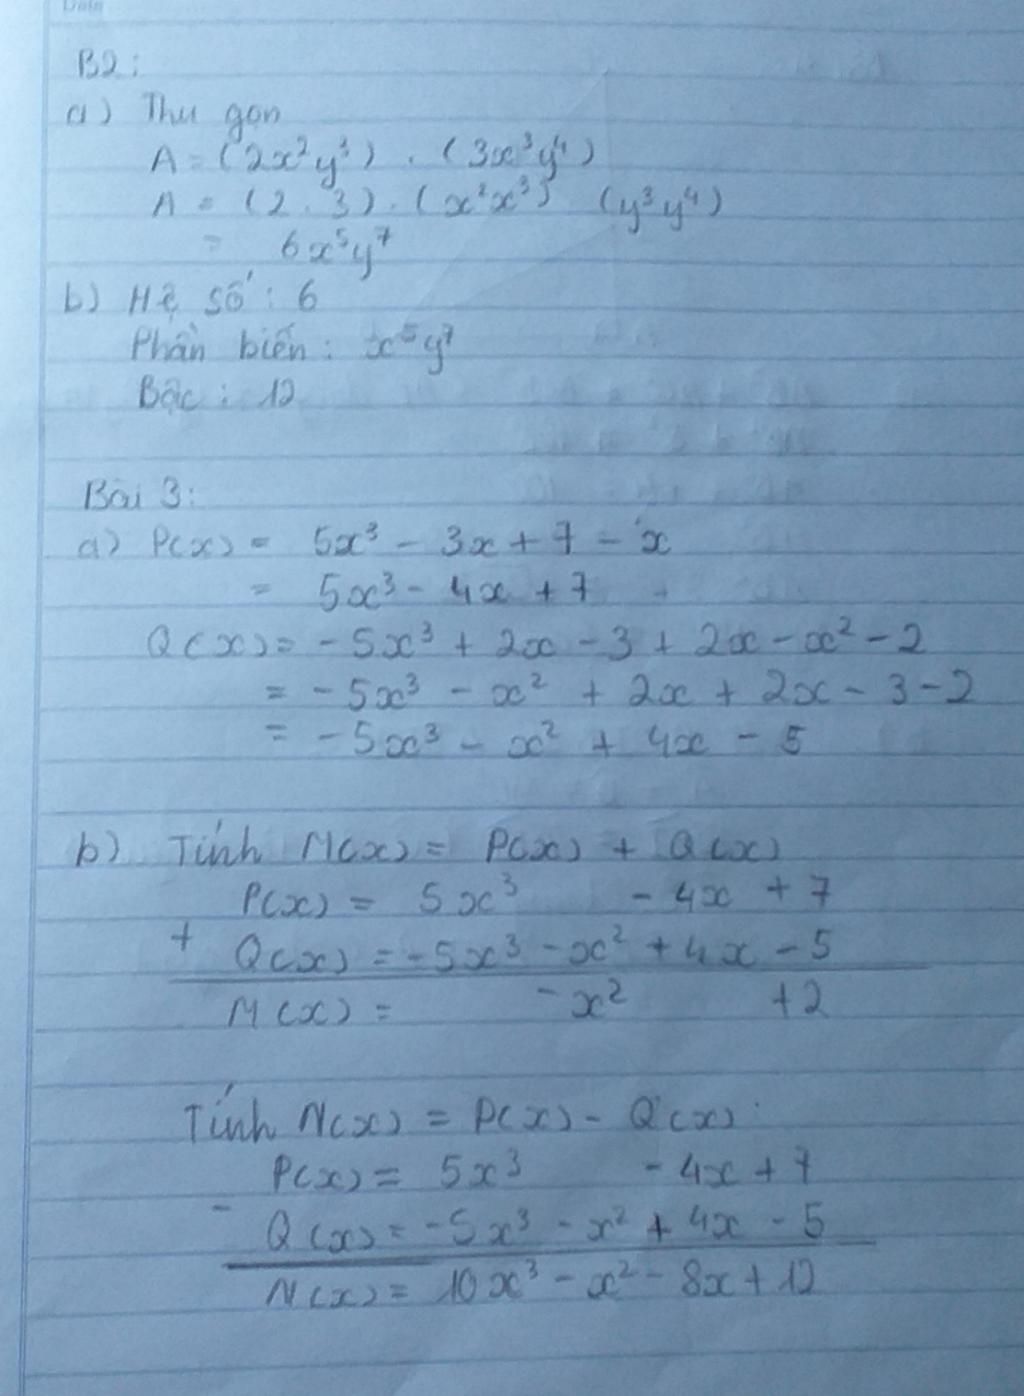 Date
B2:
a) Thu gọn
A = (2x²y³) . (3x³y⁴)
A = (2 . 3) . (x²x³) (y³y⁴)
= 6x⁵y⁷
b) Hệ số : 6
Phần biến : x⁵y⁷
Bậc : 12
Bài 3:
a) P(x) = 5x³ - 3x + 7 - x
= 5x³ - 4x + 7
Q(x) = -5x³ + 2x - 3 + 2x - x² - 2
= -5x³ - x² + 2x + 2x - 3 - 2
= -5x³ - x² + 4x - 5
b) Tính M(x) = P(x) + Q(x)
P(x) = 5x³ - 4x + 7
+
Q(x) = -5x³ - x² + 4x - 5
M(x) = -x² + 2
Tính N(x) = P(x) - Q(x) :
P(x) = 5x³ - 4x + 7
-
Q(x) = -5x³ - x² + 4x - 5
N(x) = 10x³ - x² - 8x + 12